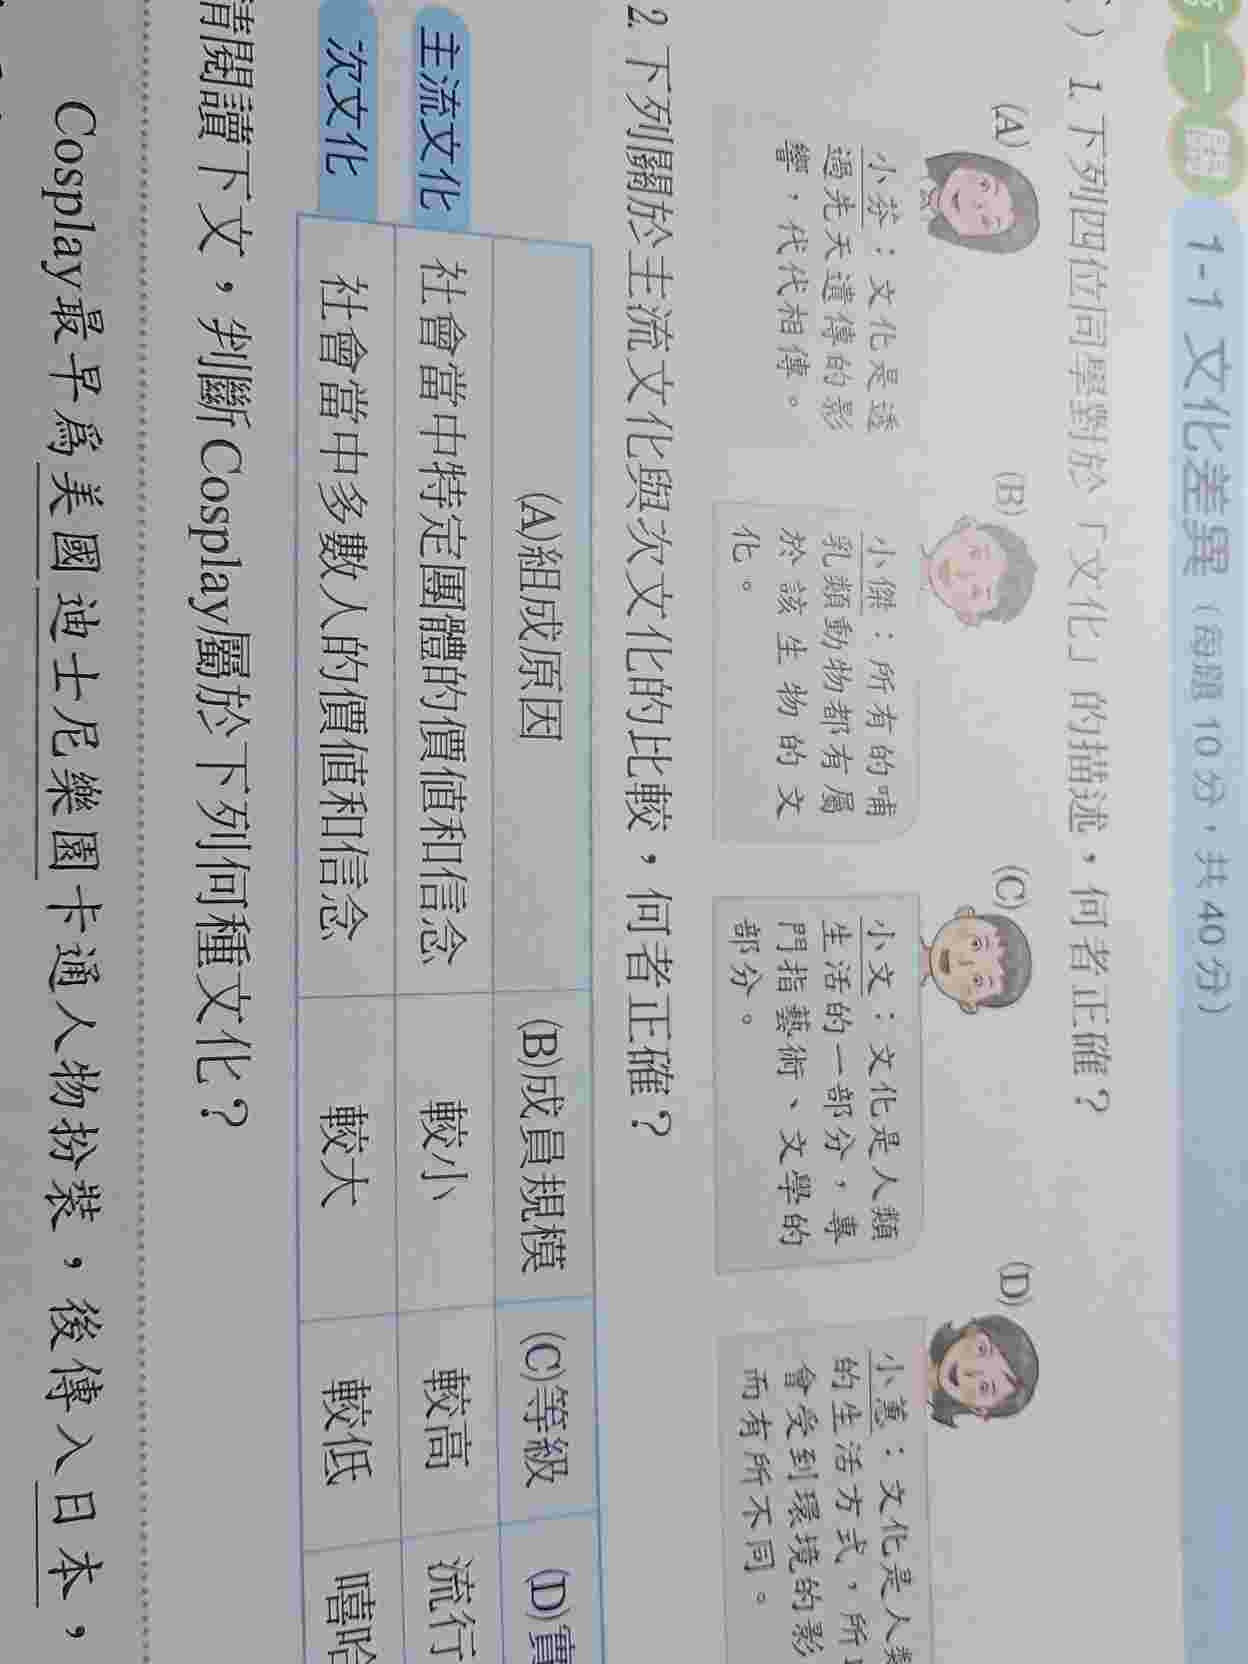 一 關 1-1 文化差異（每題10分，共40分）
）1. 下列四位同學對於「文化」的描述，何者正確？
(A)
小芬：文化是透
過先天遺傳的影
響，代代相傳。
(B)
小傑：所有的哺
乳類動物都有屬
於該生物的文
化。
(C)
小文：文化是人類
生活的一部分，專
門指藝術、文學的
部分。
(D)
小蕙：文化是人類
的生活方式，所以
會受到環境的影
而有所不同。
2. 下列關於主流文化與次文化的比較，何者正確？
(A)組成原因 (B)成員規模 (C)等級 (D)實
主流文化 社會當中特定團體的價值和信念 較小 較高 流行
次文化 社會當中多數人的價值和信念 較大 較低 嘻哈
請閱讀下文，判斷Cosplay屬於下列何種文化？
Cosplay最早為美國迪士尼樂園卡通人物扮裝，後傳入日本，